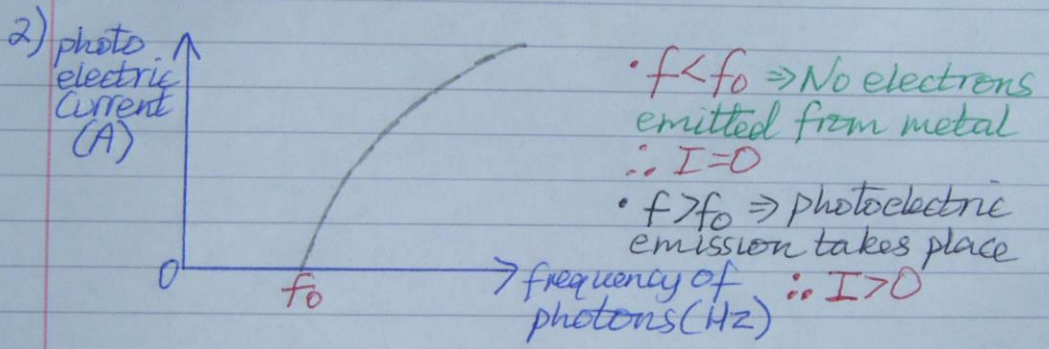 2) photo
electric
current
(A)
0
f₀
frequency of
photons (Hz)
• f < f₀ ⇒ No electrons
emitted from metal
∴ I = 0
• f > f₀ ⇒ photoelectric
emission takes place
∴ I > 0